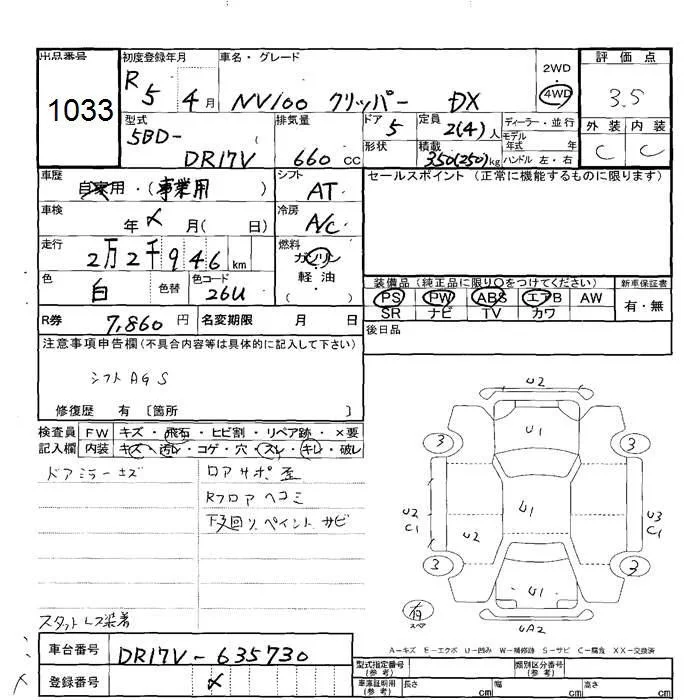 出品番号
1033
初度登録年月
R5 4月
車名・グレード
NV100 クリッパー DX
2WD・
4WD
評価点
3.5
外装 内装
C C
型式
5BD-
DR17V
排気量
660 cc
ドア
5
形状
定員
2(4)人
積載
350(250)kg
ディーラー・並行
モデル
年式 年
ハンドル 左・右
車歴
自家用・(事業用)
シフト
AT
車検
年 〆 月( 日)
冷房
A/C
走行
2万2千946km
燃料
ガソリン
軽・油
( )
色
白
色替
色コード
26U
セールスポイント(正常に機能するものに限ります)
装備品(純正品に限り○をつけてください)
新車保証書
PS PW ABS エアB AW
SR ナビ TV カワ
有・無
R券
7,860円
名変期限 月 日
後日品
注意事項申告欄(不具合内容等は具体的に記入して下さい)
シフト AGS
修復歴 有 〔箇所 〕
検査員 FW キズ・飛石・ヒビ割・リペア跡・×要
記入欄 内装 キズ・汚レ・コゲ・穴・スレ・キレ・破レ
ドアミラーキズ
ロアサポ歪
Rフロアヘコミ
下回り、ペイント サビ
スタットレス装着
U2
U1
3
3
U2
C1
U2
U1
U3
C1
3
3
U1
有
スペア
UA2
A-キズ E-エクボ U-凹み W-補修跡 S-サビ C-腐食 XX-交換済
車台番号
DR17V-635730
登録番号
〆
型式指定番号
(参考)
類別区分番号
(参考)
車庫証明用
(参考)
長さ cm
幅 cm
高さ cm